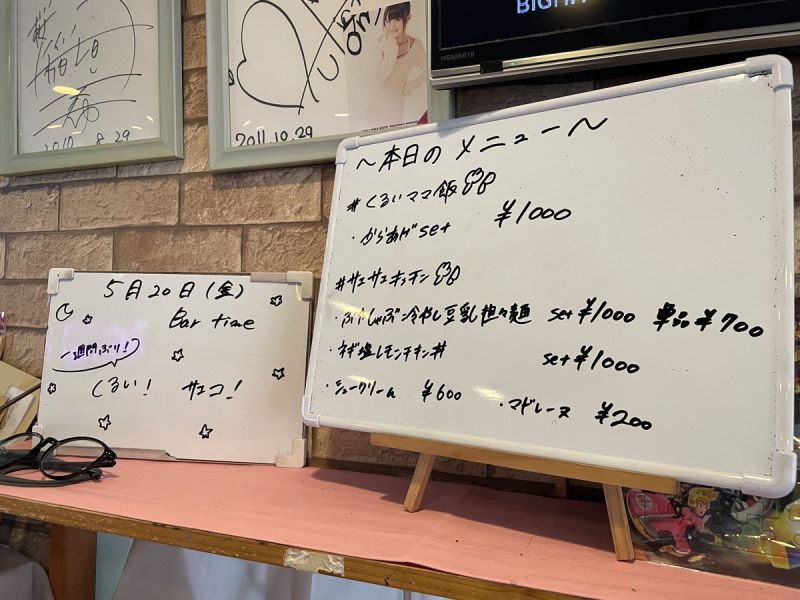 BIGHIT
HS50K610
2010.8.29
2011.10.29
～本日のメニュー～
#くるいママ飯
・からあげset ¥1000
#サエサエキッチン
・ぶたしゃぶ冷やし豆乳担々麺 set ¥1000 単品¥700
・ネギ塩レモンチキン丼 set ¥1000
・シュークリーム ¥600 ・マドレーヌ ¥200
5月20日(金)
Bar time
一週間ぶり!
くるい! サエコ!